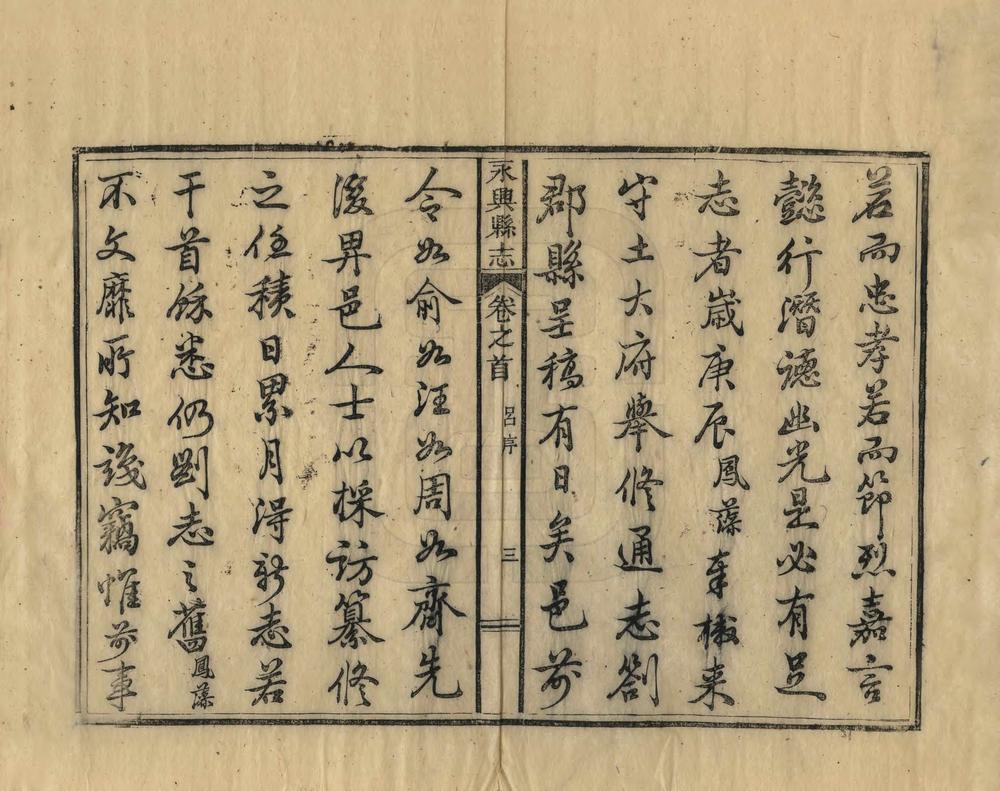 若而忠孝若而節烈嘉言
懿行潛德幽光是必有足
志者歲庚辰鳳藻奉檄来
守土大府舉修通志劄
郡縣呈稿有日矣邑前
永興縣志 卷之首 呂序 三
令如俞如汪如周如齋先
後畀邑人士以採訪纂修
之任積日累月得新志若
干首餘悉仍劉志之舊鳳藻
不文靡所知識竊惟前事